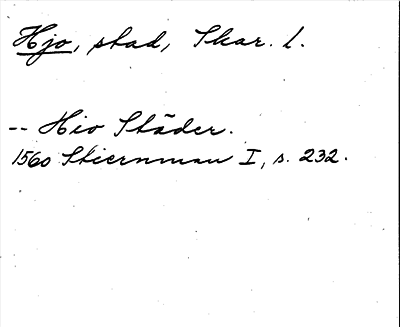 Hjo, stad, Skar. l.
-- Hio Städer.
1560 Stiernman I, s. 232.